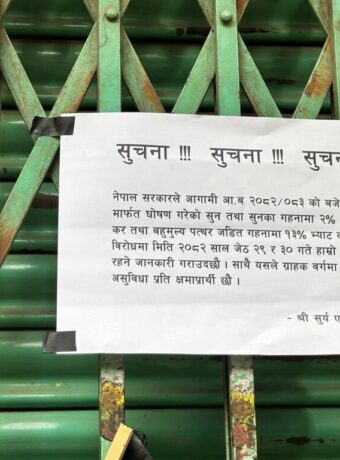 सुचना !!! सुचना !!!
नेपाल सरकारले आगामी आ.ब २०८२/०८३ को
मार्फत घोषण गरेको सुन तथा सुनका गहनामा २%
कर तथा बहुमुल्य पत्थर जडित गहनामा १३% भ्याट
विरोधमा मिति २०८२ साल जेठ २९ र ३० गते हाम्रो
रहने जानकारी गराउदछौ । साथै यसले ग्राहक बर्गमा
असुविधा प्रति क्षमाप्रार्थी छौ ।
- श्री सुर्य